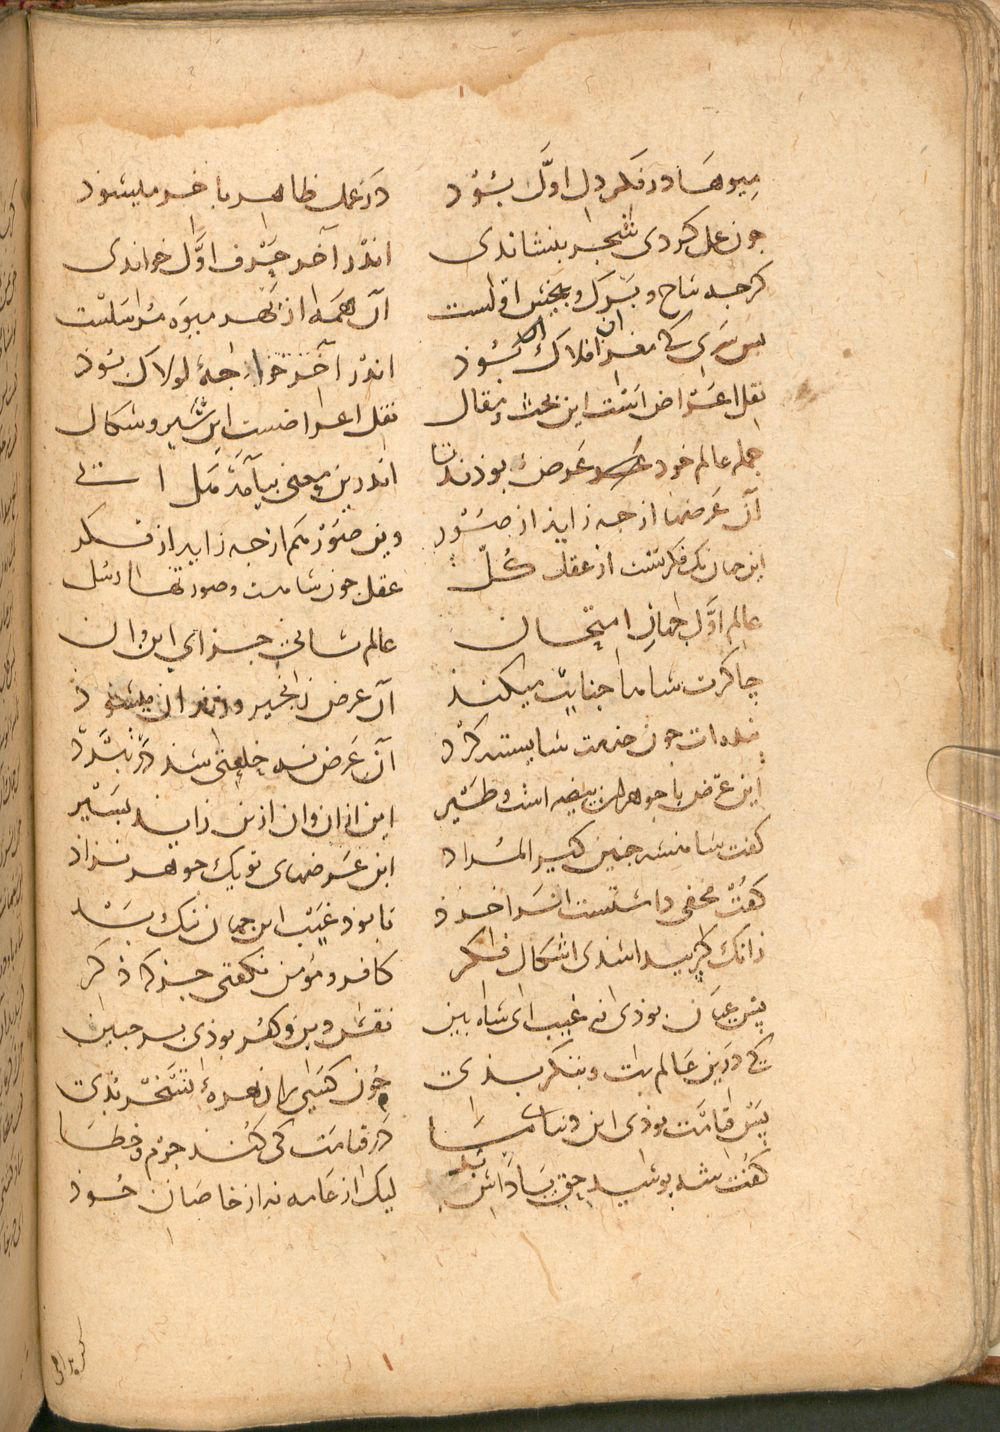 میوها در فکر دل اوّل بُوَذ در عمل ظاهر باخر میشوذ
جون عمل کردی شجر بنشاندی اندر آخر حرف اوّل خواندی
کرجه شاخ و برک و بیخش اوّلست آن همه از بهر میوه مُرسَلست
بس سَری کی مغز آن افلاک بُوذ اندر آخر خواجهٔ لولاک بوذ
نقل اعراض است این بحث و مقال نقل اعراضست این شیر و شکال
جمله عالم خود عَرَض بوذند تا اندرین معنی بیامَذ هَل اتی
آن عَرَضها از جه زایذ از صُوَر وین صُوَر هم از جه زاید از فکر
این جهان یک فکرتست از عقل کُلّ عقل جون شاهست و صورتها رُسُل
عالم اوّل جهان امتحان عالم ثانی جزای این و آن
چاکرت شاها جنایت میکنذ آن عرض زنجیر و زندان میشوذ
بنده‌ات جون خدمت شایسته کرد آن عَرَض نه خلعتی شد در نبرد
این عَرَض با جوهر آن بیضه است و طَیْر این از آن و ان ازین زاید بسَیْر
کفت شاهنشه جنین کیر المُراد این عَرَضهای تو یک جوهر نزاد
کفت مخفی داشتست انرا خرذ تا بوذ غَیْب این جهان نیک و بد
زانک کر پیدا شدی اشکال فکر کافر و مؤمن نکفتی جز که ذکر
پس عیان بوذی نه غیب ای شاه این نقش دین و کفر بوذی بر جبین
کی درین عالم بت و بتکر بذی جون کسی را زهرهٔ تسَخّر بُذی
پس قیامت بوذی این دنیای ما در قیامت کی کند جرم و خطا
کفت شه پوشید حق پاداش بَد لیک از عامه نه از خاصان خوذ